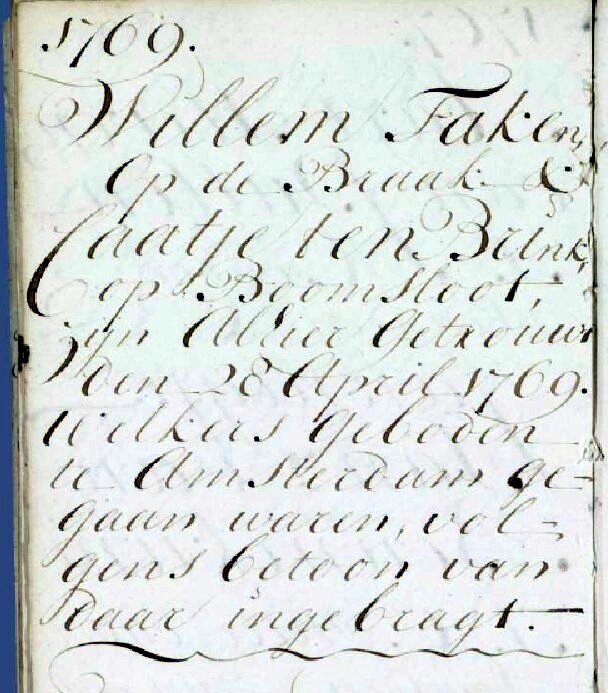 1769.
Willem Faken,
Op de Braak &
Caatje ten Brink,
op Boomsloot,
zijn Alhier Getrouwt
den 28 April 1769.
Welkers geboden
te Amsterdam ge=
gaan waren, vol=
gens betoon van
daar ingebragt.